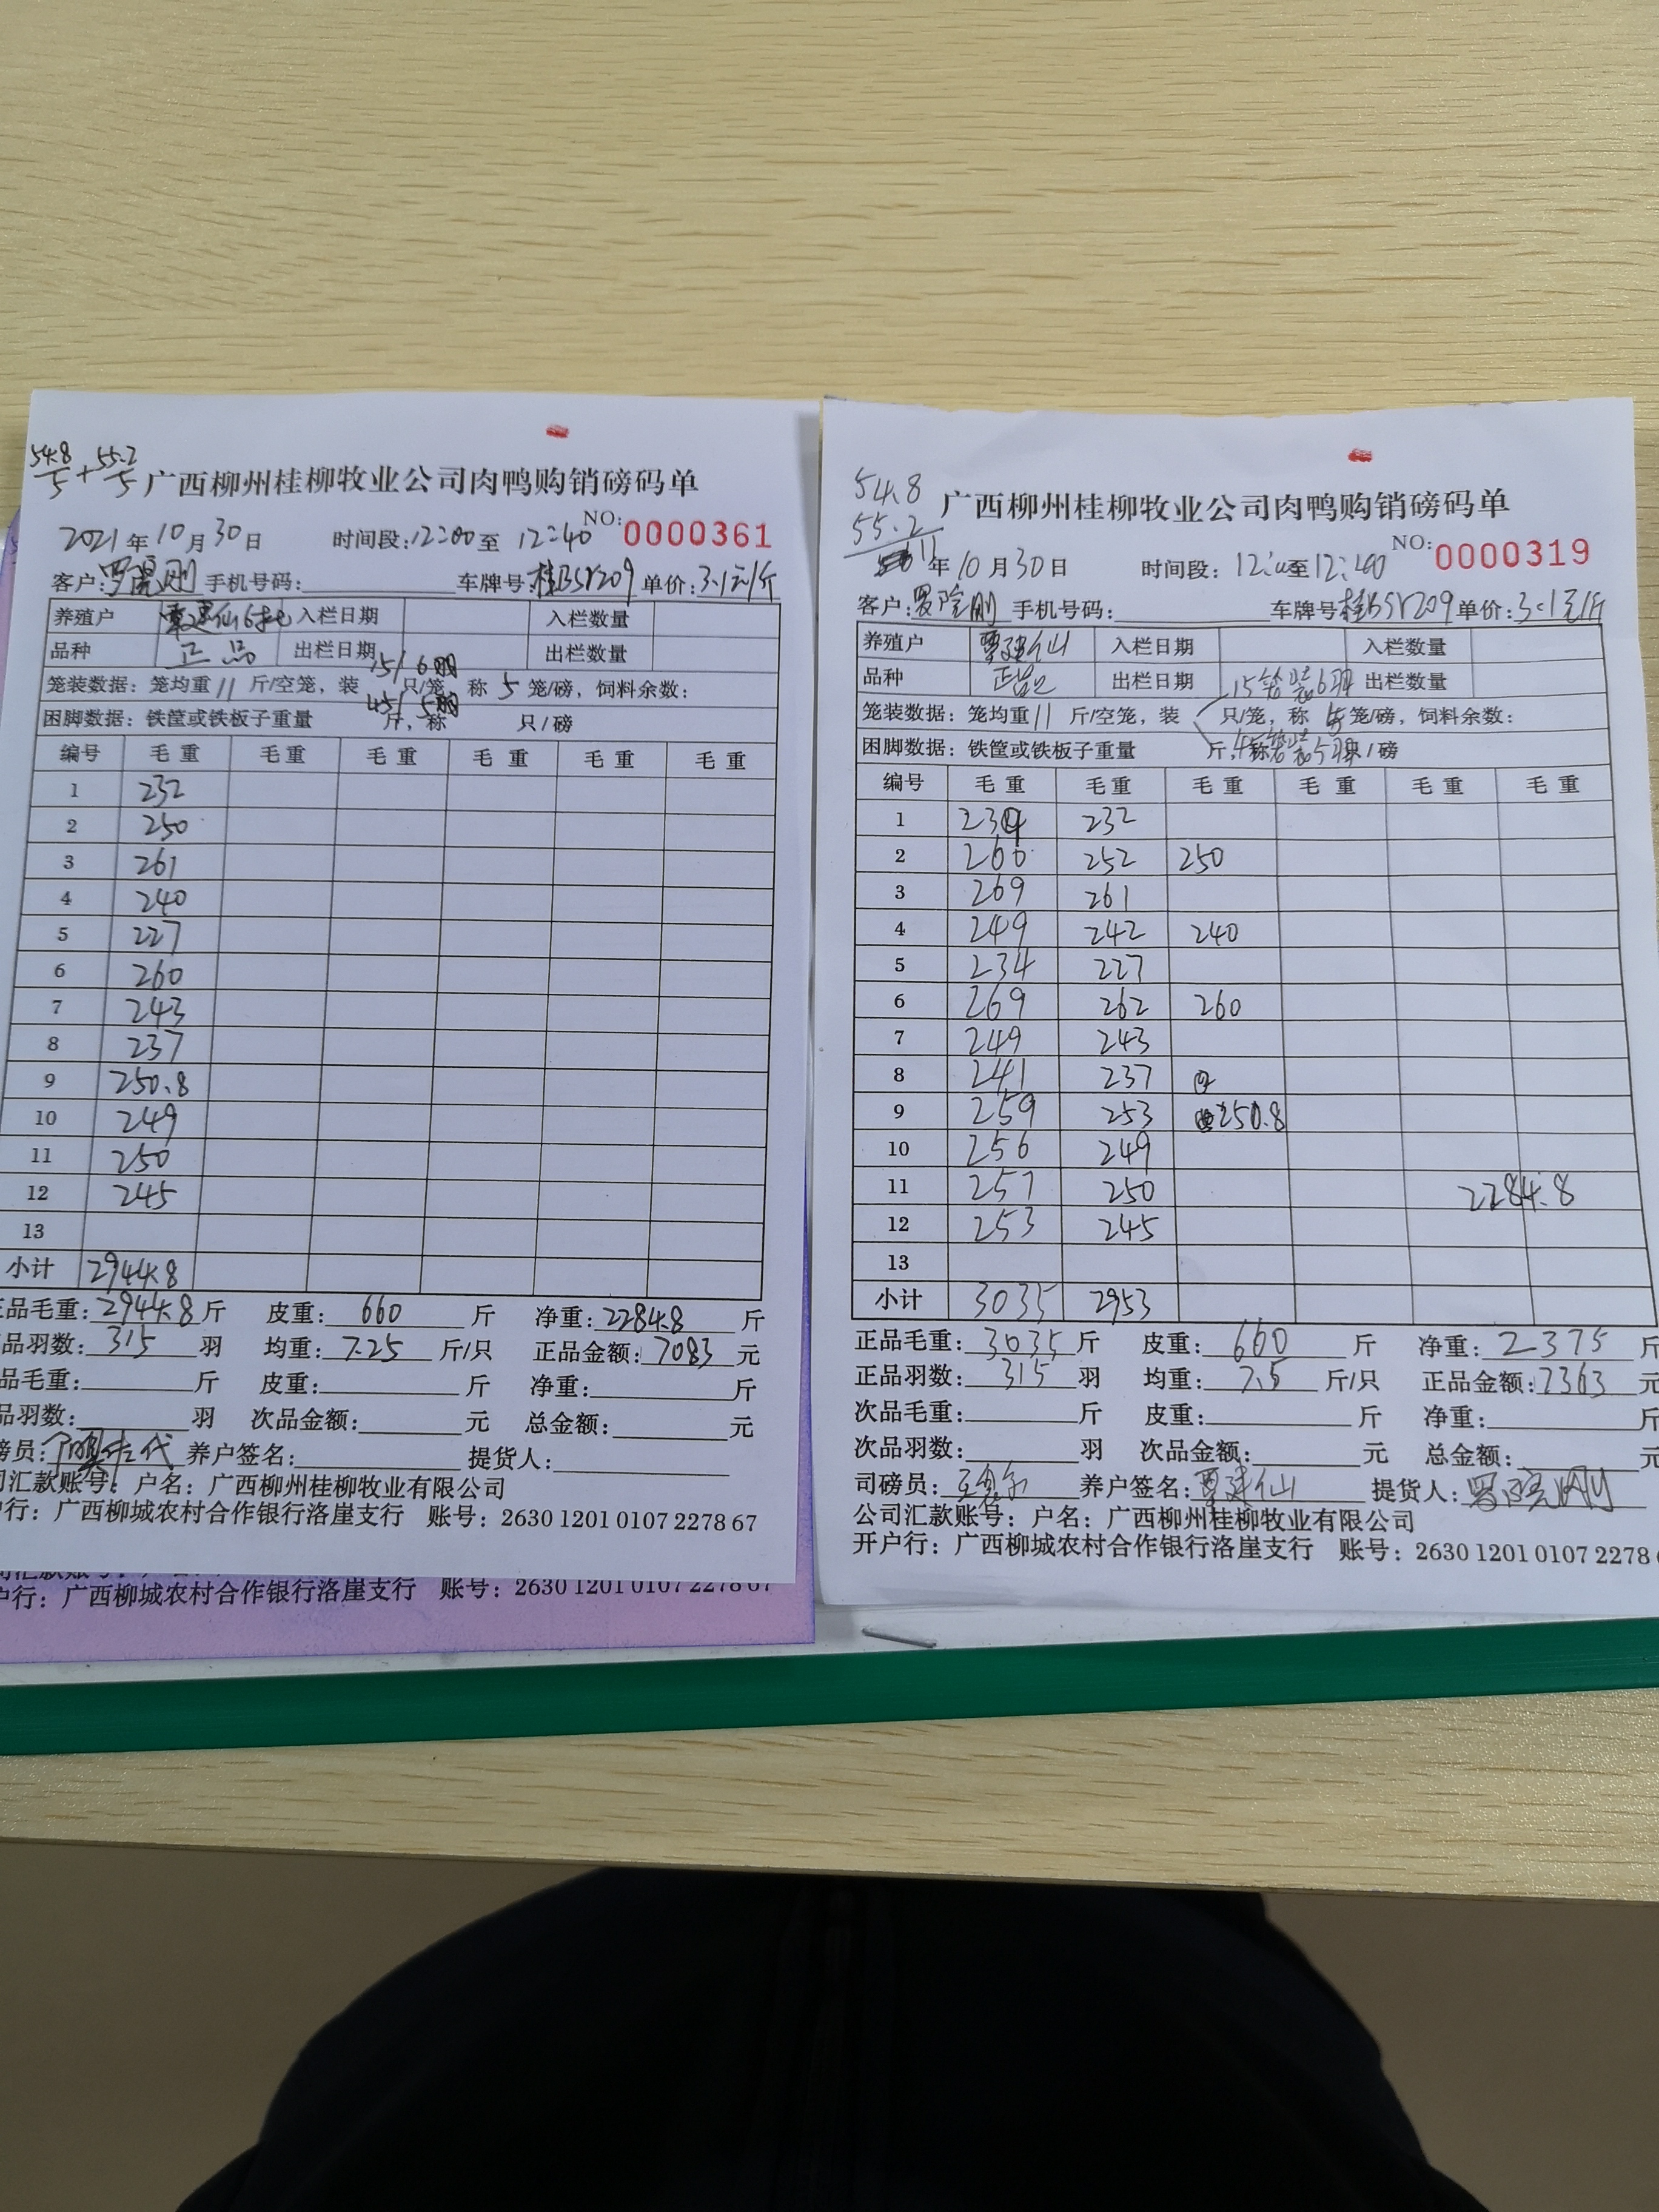 54.8/5 + 55.2/5
广西柳州桂柳牧业公司肉鸭购销磅码单
2021年10月30日 时间段:12:00至 12:40 NO:0000361
客户: 手机号码: 车牌号: 单价:3.1元/斤
养殖户 入栏日期 入栏数量
品种 正品 出栏日期 出栏数量
15/6羽
笼装数据:笼均重11斤/空笼,装 只/笼,称5笼/磅,饲料余数:
45/5羽
困脚数据:铁筐或铁板子重量 斤,称 只/磅
编号 毛重 毛重 毛重 毛重 毛重 毛重
1 232
2 250
3 261
4 240
5 227
6 260
7 243
8 237
9 250.8
10 249
11 250
12 245
13
小计 2944.8
品毛重:2944.8斤 皮重:660斤 净重:2284.8斤
品羽数:315羽 均重:7.25斤/只 正品金额:7083元
品毛重: 斤 皮重: 斤 净重: 斤
品羽数: 羽 次品金额: 元 总金额: 元
磅员: 养户签名: 提货人:
司汇款账号:户名:广西柳州桂柳牧业有限公司
户行:广西柳城农村合作银行洛崖支行 账号:2630 1201 0107 2278 67
户行:广西柳城农村合作银行洛崖支行 账号:2630 1201 0107 2278 67
54.8
55.2
11
广西柳州桂柳牧业公司肉鸭购销磅码单
年10月30日 时间段:12:00至12:40 NO:0000319
客户: 手机号码: 车牌号 单价:3.1元/斤
养殖户 覃建仙 入栏日期 入栏数量
品种 正品 出栏日期 出栏数量
15笼装6羽
笼装数据:笼均重11斤/空笼,装 只/笼,称5笼/磅,饲料余数:
困脚数据:铁筐或铁板子重量 斤,称 只/磅
编号 毛重 毛重 毛重 毛重 毛重 毛重
1 234 232
2 266 252 250
3 269 261
4 249 242 240
5 234 227
6 269 262 260
7 249 243
8 241 237
9 259 253 250.8
10 256 249
11 257 250 2284.8
12 253 245
13
小计 3035 2953
正品毛重:3035斤 皮重:660斤 净重:2375斤
正品羽数:315羽 均重:7.5斤/只 正品金额:7363元
次品毛重: 斤 皮重: 斤 净重: 斤
次品羽数: 羽 次品金额: 元 总金额: 元
司磅员: 养户签名:覃建仙 提货人:
公司汇款账号:户名:广西柳州桂柳牧业有限公司
开户行:广西柳城农村合作银行洛崖支行 账号:2630 1201 0107 2278